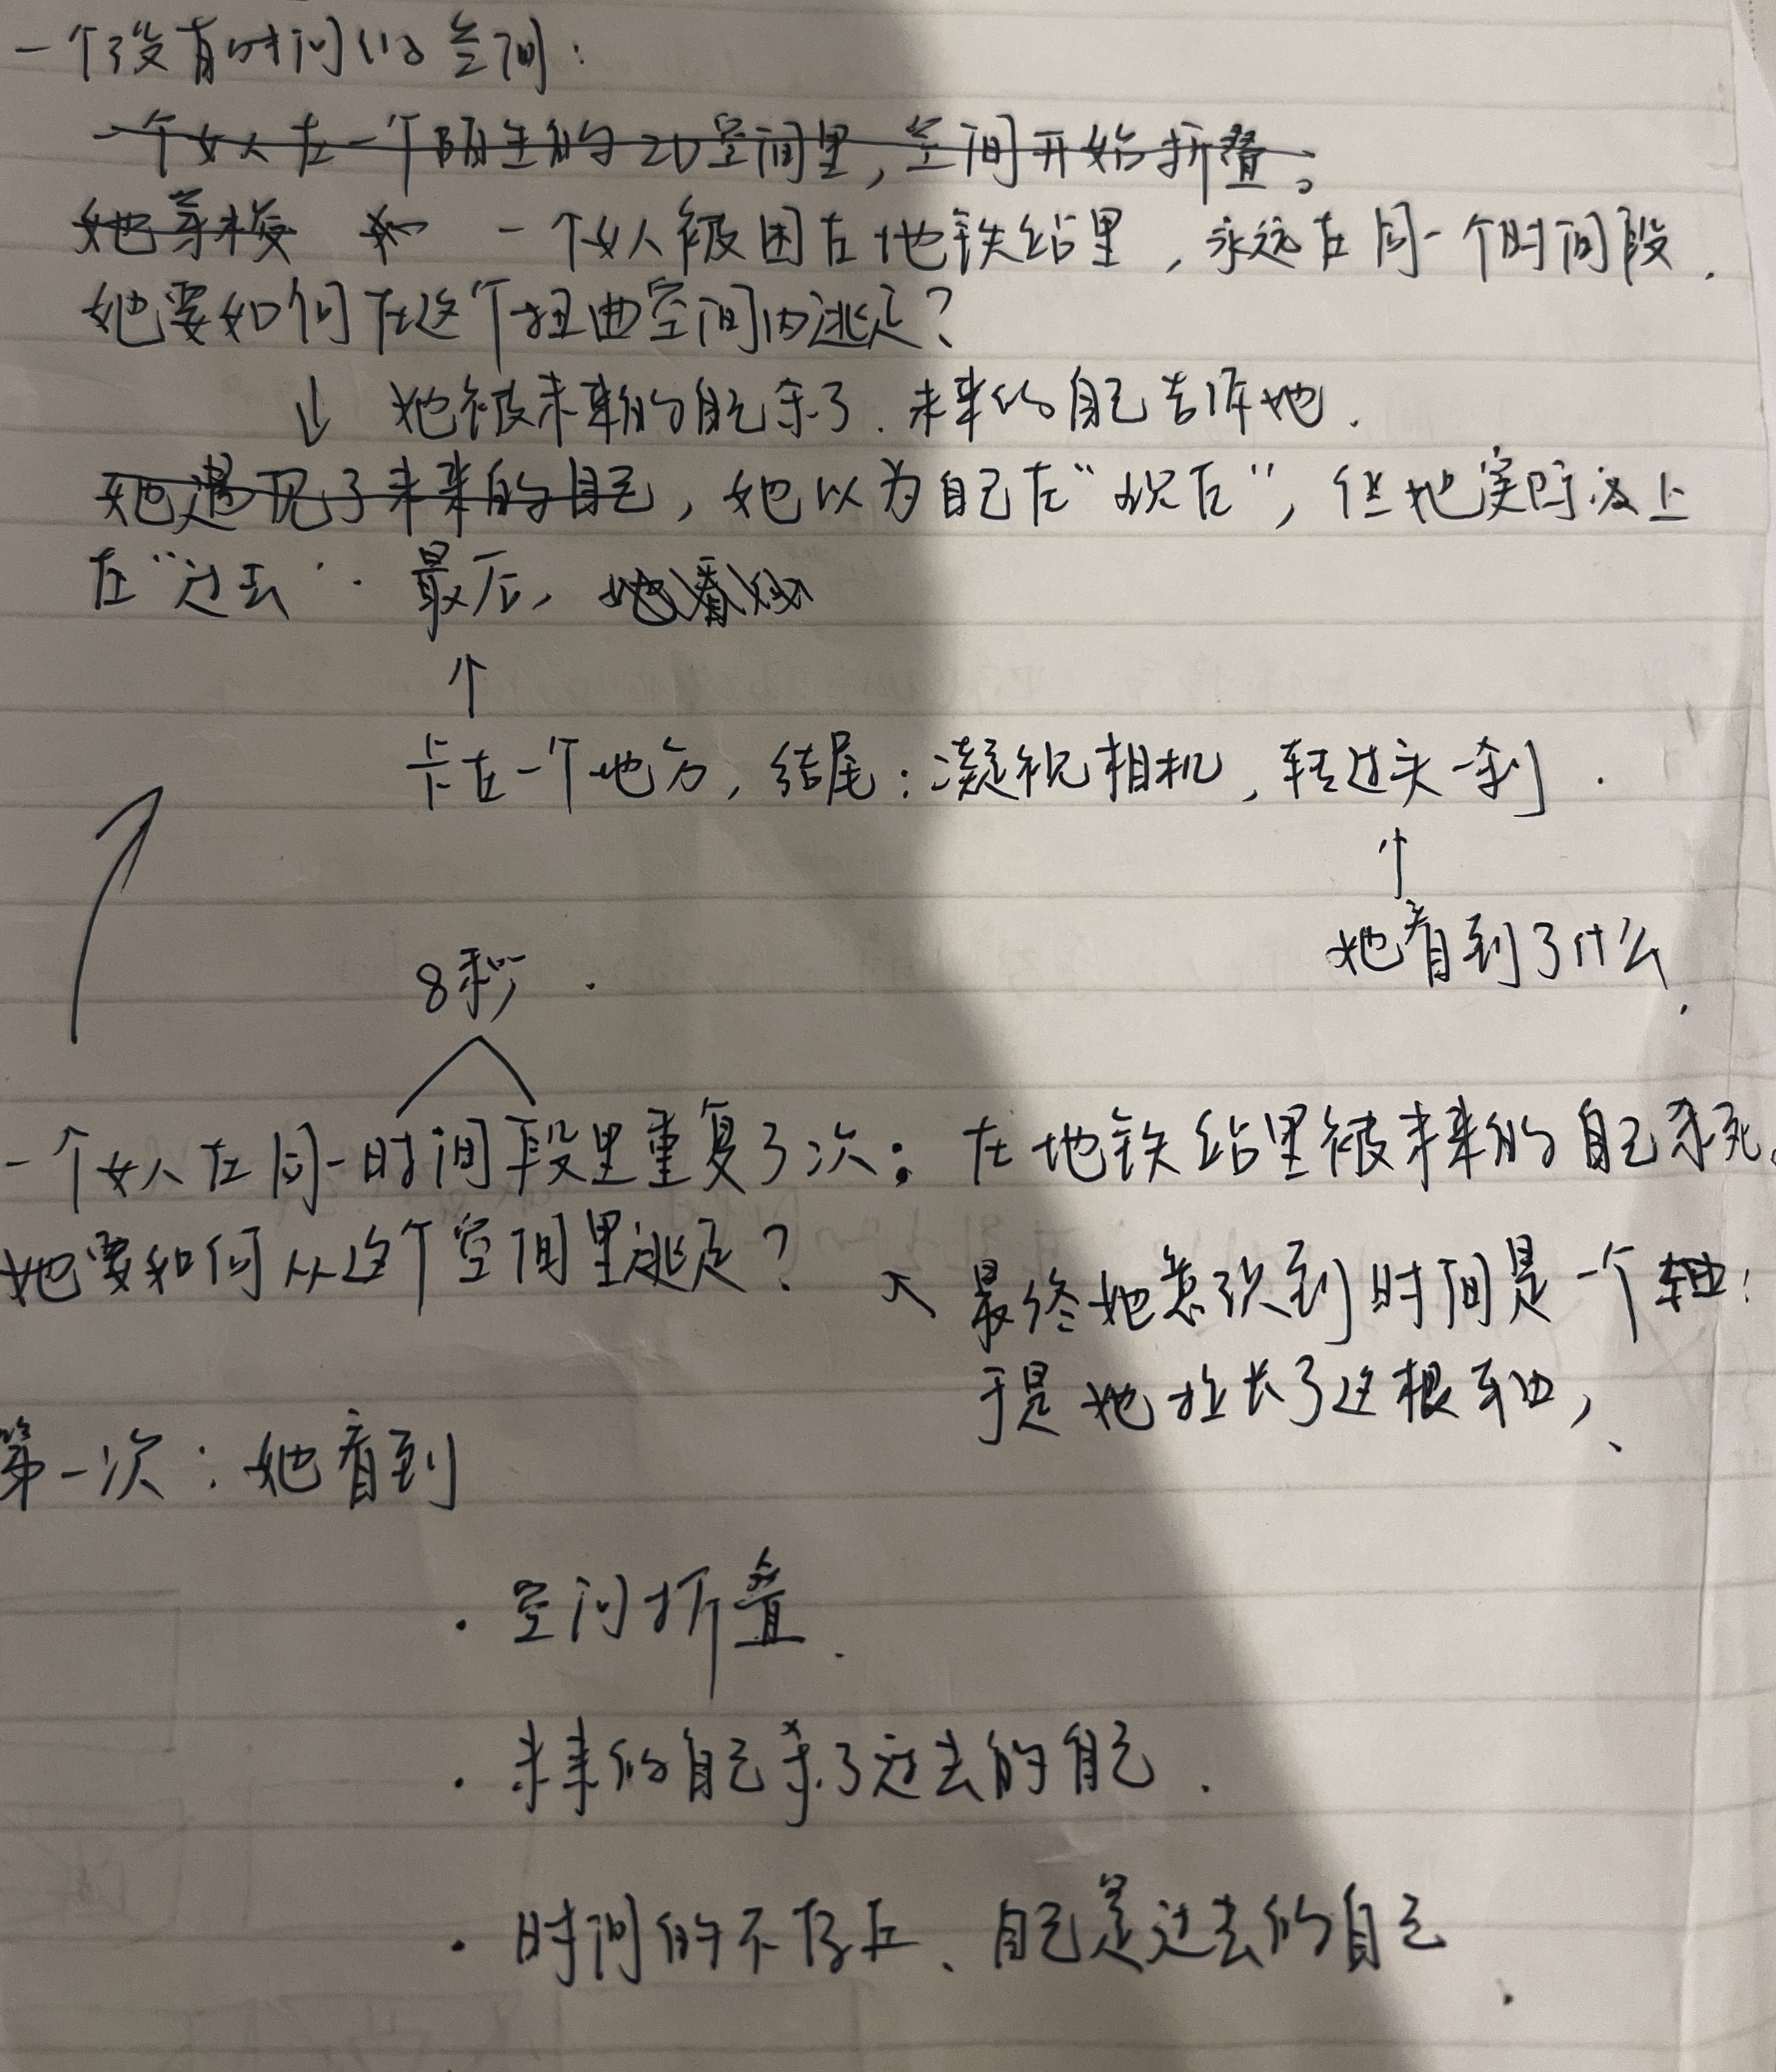 一个没有时间的空间：
一个女人在一个陌生的2D空间里，空间开始折叠。
她 一个女人被困在地铁站里，永远在同一个时间段．
她要如何在这个扭曲空间内逃走？
↓ 她被未来的自己杀了．未来的自己告诉她．
她遇见了未来的自己，她以为自己在“现在”，但她实际上
在“过去”．最后，她看
↑
卡在一个地方，结尾：凝视相机，转过头一刹．
↑
她看到了什么．
8秒．
一个女人在同一时间段里重复了次：在地铁站里被未来的自己杀死。
她要如何从这个空间里逃走？
↖ 最终她意识到时间是一个轴：
于是她拉长了这根轴，
第一次：她看到
· 空间折叠．
· 未来的自己杀了过去的自己．
· 时间的不存在、自己是过去的自己．